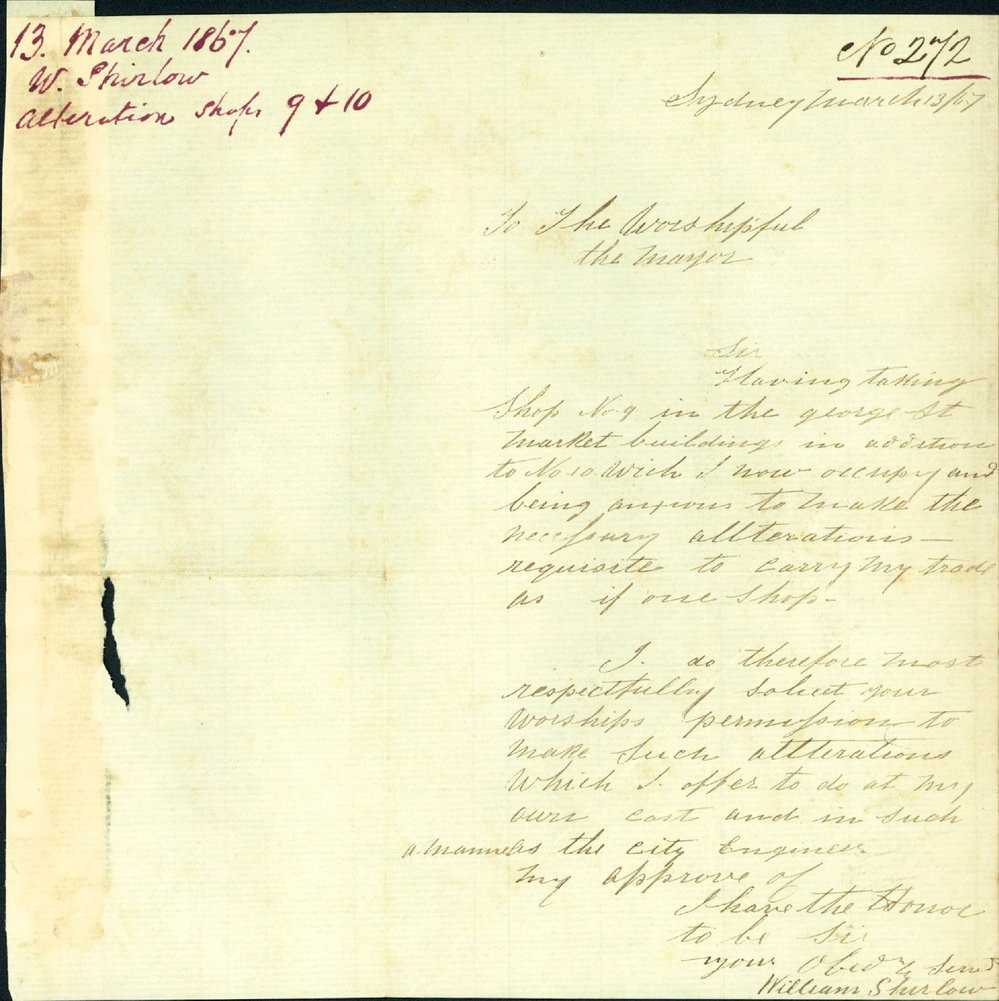 13. March 1867.
W. Shirlow
alteration shops 9 & 10
No 272
Sydney March 13/67
To The Worshipful
the Mayor
Sir
Having taking
Shop No 9 in the george St
market buildings in addition
to No 10 Wich I now occupy and
being anxious to make the
necessary allterations—
requisite to carry my trade
as if one shop—
I. do therefore most
respectfully solicet your
Worships permission to
make such allterations
Which I. offer to do at my
own cost and in such
a manner as the city Engineer
my approve of
I have the Honor
to be Sir
your Obedt Servt
William Shirlow